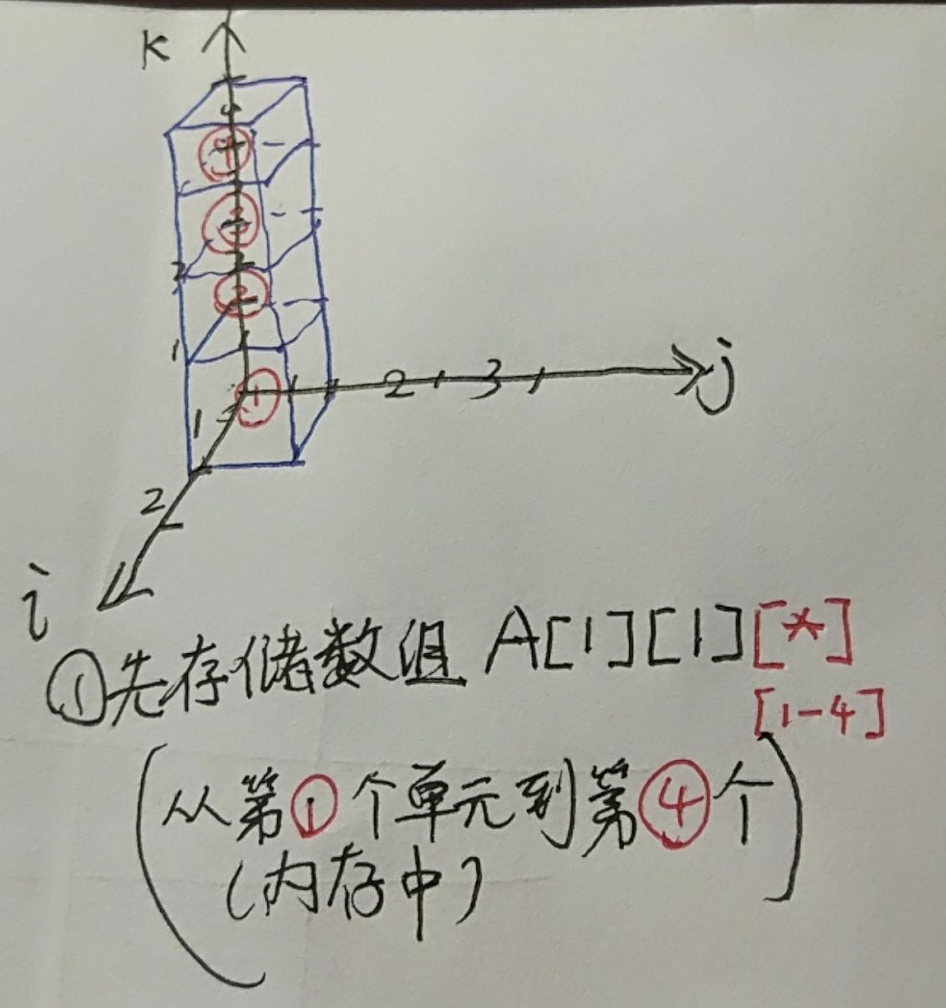 K
4
④
3
③
2
2
②
1
1
①
1
2
3
j
1
2
i
①先存储数组 A[1][1][*]
[1-4]
(从第①个单元到第④个
(内存中))